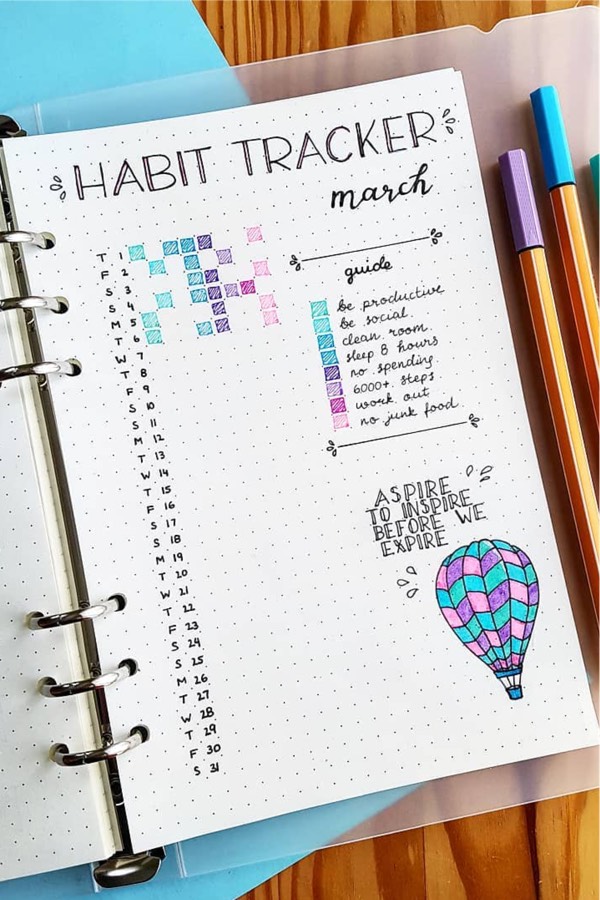 HABIT TRACKER
march
T 1
F 2
S 3
S 4
M 5
T 6
W 7
T 8
F 9
S 10
S 11
M 12
T 13
W 14
T 15
F 16
S 17
S 18
M 19
T 20
W 21
T 22
F 23
S 24
S 25
M 26
T 27
W 28
T 29
F 30
S 31
guide
be productive
be social
clean room
sleep 8 hours
no spending
6000+ steps
work out
no junk food
ASPIRE
TO INSPIRE
BEFORE WE
EXPIRE